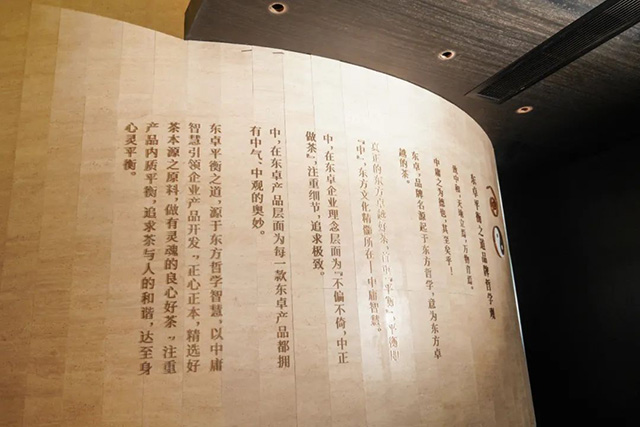 东卓平衡之道品牌哲学观
致中和，天地立焉，万物育焉。
中庸之为德也，其至矣乎！
东卓，品牌名源起于东方哲学，意为东方卓
越的茶。
“中”，东方文化精髓所在——中庸智慧。
中，在东卓企业理念层面为“不偏不倚，中正
做茶”，注重细节，追求极致。
中，在东卓产品层面为每一款东卓产品都拥
有中气、中观的奥妙。
东卓平衡之道，源于东方哲学智慧，以中庸
智慧引领企业产品开发，“正心正本，精选好
茶本源之原料，做有灵魂的良心好茶”，注重
产品内质平衡，追求茶与人的和谐，达至身
心灵平衡。